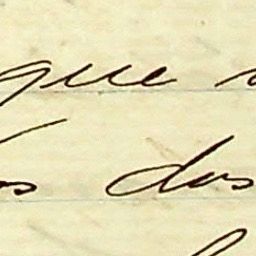 que
os dos